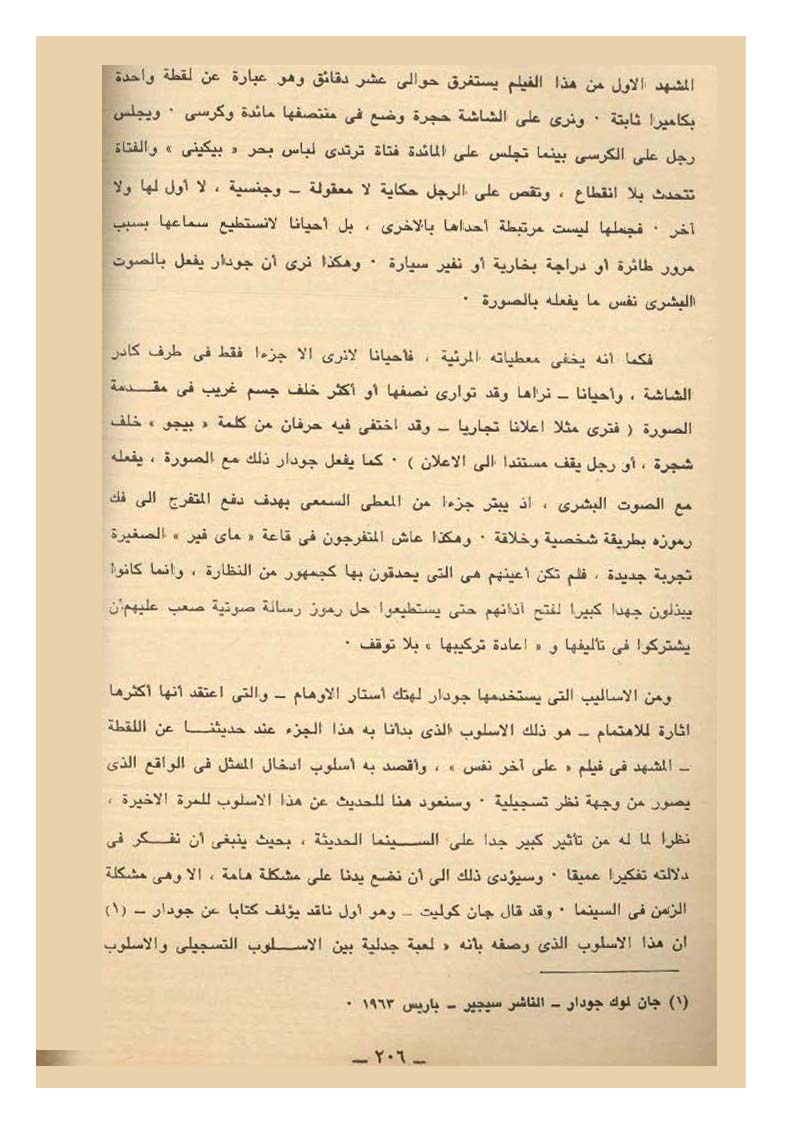 المشهد الاول من هذا الفيلم يستغرق حوالى عشر دقائق وهو عبارة عن لقطة واحدة
بكاميرا ثابتة ٠ ونرى على الشاشة حجرة وضع فى منتصفها مائدة وكرسى ٠ ويجلس
رجل على الكرسى بينما تجلس على المائدة فتاة ترتدى لباس بحر « بيكينى » والفتاة
تتحدث بلا انقطاع ، وتقص على الرجل حكاية لا معقولة ــ وجنسية ، لا أول لها ولا
آخر ٠ فجملها ليست مرتبطة أحداها بالاخرى ، بل أحيانا لانستطيع سماعها بسبب
مرور طائرة أو دراجة بخارية أو نفير سيارة ٠ وهكذا نرى أن جودار يفعل بالصوت
البشرى نفس ما يفعله بالصورة ٠
فكما أنه يخفى معطياته المرئية ، فأحيانا لانرى الا جزءا فقط فى طرف كادر
الشاشة ، وأحيانا ــ نراها وقد توارى نصفها أو أكثر خلف جسم غريب فى مقدمة
الصورة ( فترى مثلا اعلانا تجاريا ــ وقد اختفى فيه حرفان من كلمة « بيجو » خلف
شجرة ، أو رجل يقف مستندا الى الاعلان ) ٠ كما يفعل جودار ذلك مع الصورة ، يفعله
مع الصوت البشرى ، اذ يبتر جزءا من المعطى السمعى بهدف دفع المتفرج الى فك
رموزه بطريقة شخصية وخلاقة ٠ وهكذا عاش المتفرجون فى قاعة « ماى فير » الصغيرة
تجربة جديدة ، فلم تكن أعينهم هى التى يحدقون بها كجمهور من النظارة ، وانما كانوا
يبذلون جهدا كبيرا لفتح آذانهم حتى يستطيعوا حل رموز رسالة صوتية صعب عليهم أن
يشتركوا فى تأليفها و « اعادة تركيبها » بلا توقف ٠
ومن الاساليب التى يستخدمها جودار لهتك أستار الاوهام ــ والتى اعتقد أنها أكثرها
اثارة للاهتمام ــ هو ذلك الاسلوب الذى بدأنا به هذا الجزء عند حديثنا عن اللقطة
ــ المشهد فى فيلم « على آخر نفس » ، وأقصد به أسلوب ادخال الممثل فى الواقع الذى
يصور من وجهة نظر تسجيلية ٠ وسنعود هنا للحديث عن هذا الاسلوب للمرة الاخيرة ،
نظرا لما له من تأثير كبير جدا على السينما الحديثة ، بحيث ينبغى أن نفكر فى
دلالته تفكيرا عميقا ٠ وسيؤدى ذلك الى أن نضع يدنا على مشكلة هامة ، الا وهى مشكلة
الزمن فى السينما ٠ وقد قال جان كوليت ــ وهو أول ناقد يؤلف كتابا عن جودار ــ (١)
ان هذا الاسلوب الذى وصفه بأنه « لعبة جدلية بين الاسلوب التسجيلى والاسلوب
(١) جان لوك جودار ــ الناشر سيجير ــ باريس ١٩٦٣ ٠
ــ ٢٠٦ ــ